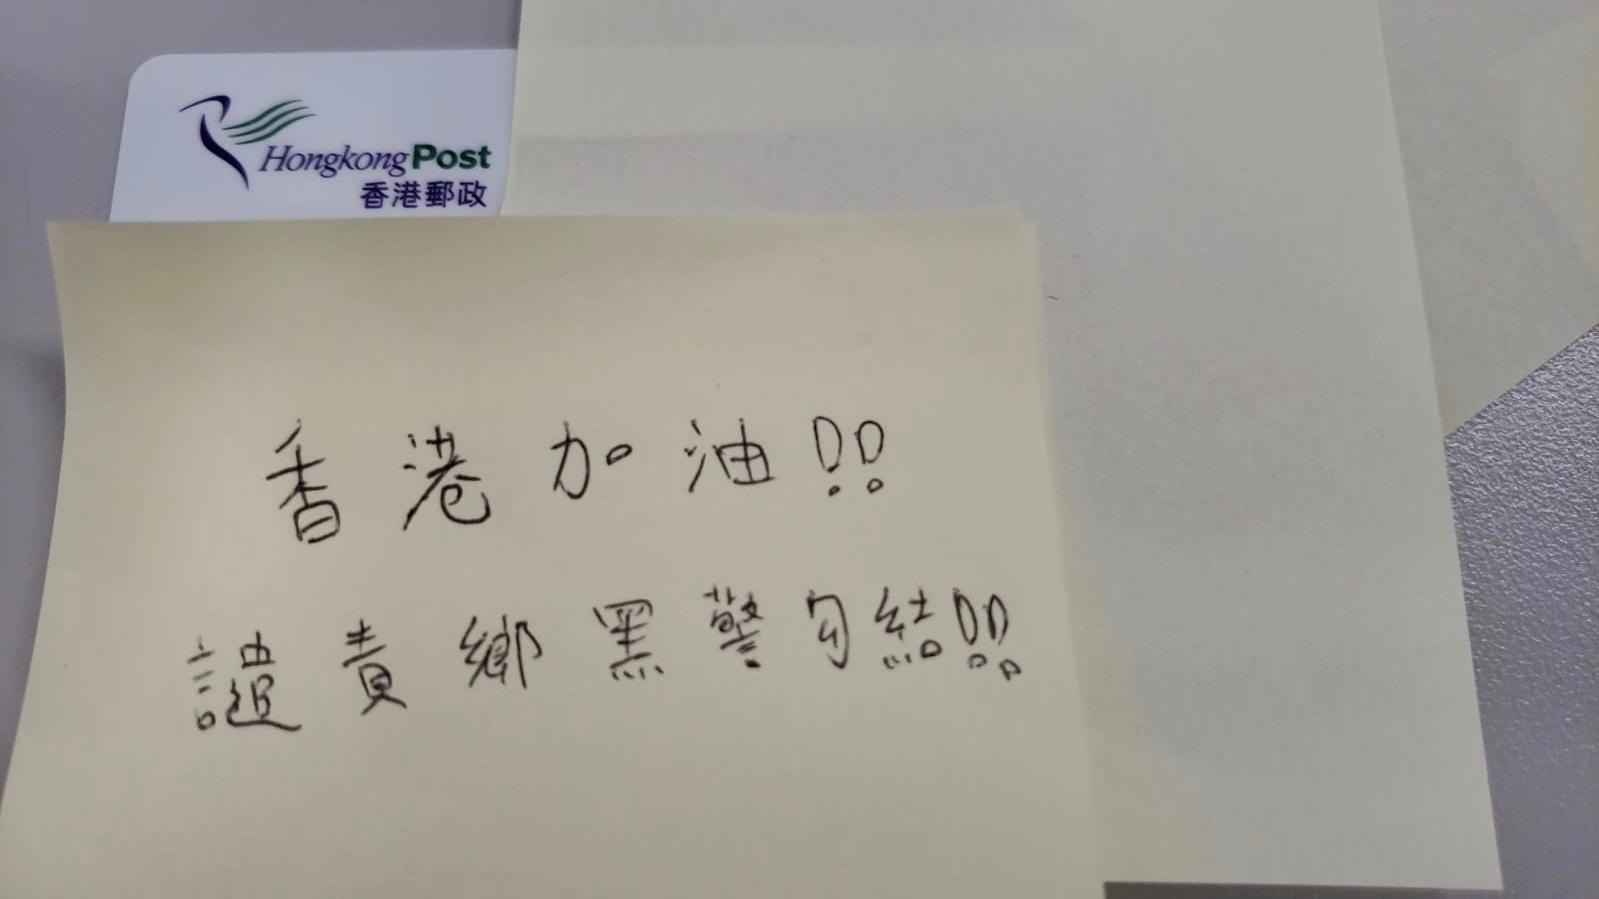 Hongkong Post
香港郵政
香港加油!!
譴責鄉黑警勾結!!